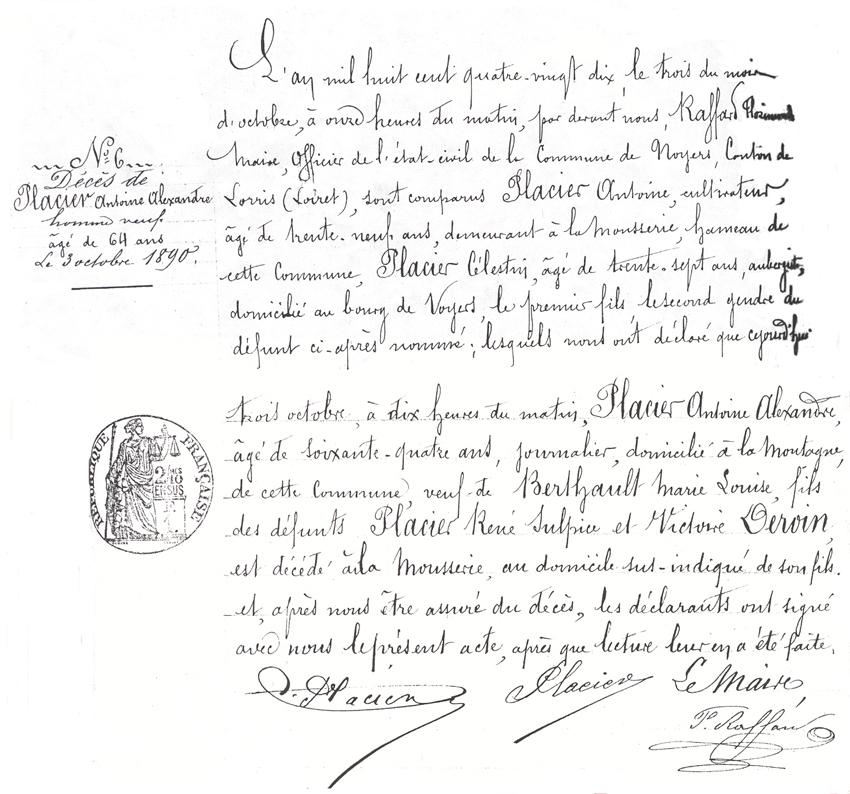 N° 6
Décès de
Placier Antoine Alexandre
homme veuf
âgé de 64 ans
Le 3 octobre 1890.
L'an mil huit cent quatre-vingt dix, le trois du mois
d'octobre, à onze heures du matin, par devant nous, Raffard
Maire, Officier de l'état-civil de la Commune de Noyers, Canton de
Lorris (Loiret), sont comparus Placier Antoine, cultivateur,
âgé de trente-neuf ans, demeurant à la Mousserie, hameau de
cette Commune, Placier Célestin, âgé de trente-sept ans, aubergiste,
domicilié au bourg de Noyers, le premier fils, le second gendre du
défunt ci-après nommé; lesquels nous ont déclaré que cejourd'hui
trois octobre, à dix heures du matin, Placier Antoine Alexandre,
âgé de soixante-quatre ans, journalier, domicilié à la Montagne,
de cette Commune, veuf de Berthault Marie Louise, fils
des défunts Placier René Sulpice et Victoire Deroin,
est décédé à la Mousserie, au domicile sus-indiqué de son fils.
et, après nous être assuré du décès, les déclarants ont signé
avec nous le présent acte, après que lecture leur en a été faite.
Placier Placier Le Maire,
Raffard
RÉPUBLIQUE FRANÇAISE
2/10
EN SUS